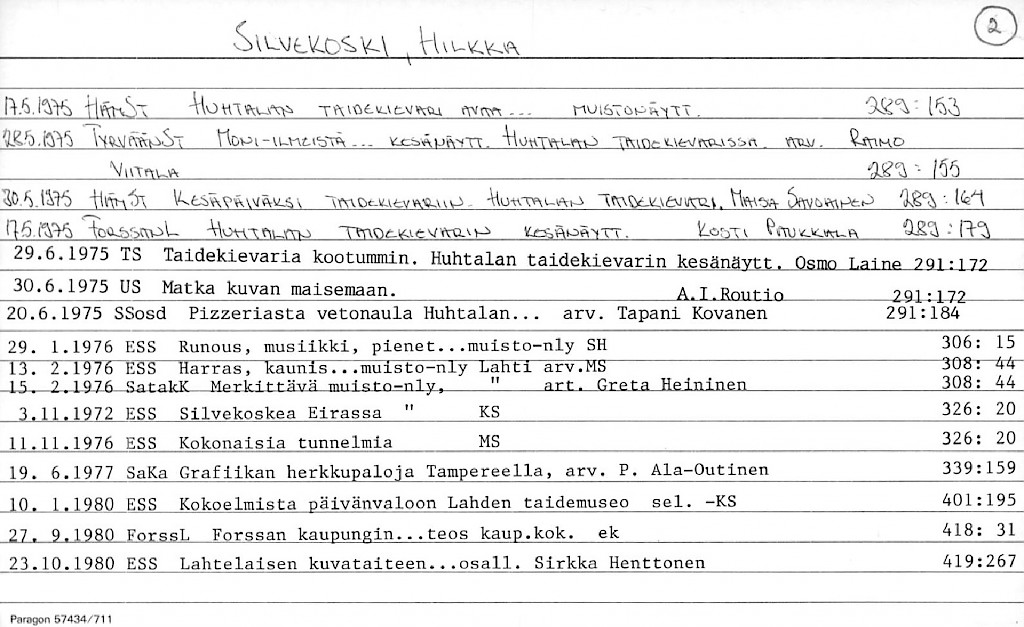 2
SILVEKOSKI, HILKKA
17.5.1975 HÄMST HUHTALAN TAIDEKIEVARI AVAA... MUISTONÄYTT. 289:153
28.5.1975 TYRVÄÄNST MONI-ILMEISTÄ... KESÄNÄYTT. HUHTALAN TAIDEKIEVARISSA. ARV. RAIMO
VIITALA 289:155
30.5.1975 HÄMST KESÄPÄIVÄKSI TAIDEKIEVARIIN. HUHTALAN TAIDEKIEVARI. MAISA SAVOLAINEN 289:164
17.5.1975 FORSSANL HUHTALAN TAIDEKIEVARIN KESÄNÄYTT. KOSTI PAUKKALA 289:179
29.6.1975 TS Taidekievaria kootummin. Huhtalan taidekievarin kesänäytt. Osmo Laine 291:172
30.6.1975 US Matka kuvan maisemaan. A.I.Routio 291:172
20.6.1975 SSosd Pizzeriasta vetonaula Huhtalan... arv. Tapani Kovanen 291:184
29. 1.1976 ESS Runous, musiikki, pienet...muisto-nly SH 306: 15
13. 2.1976 ESS Harras, kaunis...muisto-nly Lahti arv.MS 308: 44
15. 2.1976 SatakK Merkittävä muisto-nly, " art. Greta Heininen 308: 44
3.11.1972 ESS Silvekoskea Eirassa " KS 326: 20
11.11.1976 ESS Kokonaisia tunnelmia MS 326: 20
19. 6.1977 SaKa Grafiikan herkkupaloja Tampereella, arv. P. Ala-Outinen 339:159
10. 1.1980 ESS Kokoelmista päivänvaloon Lahden taidemuseo sel. -KS 401:195
27. 9.1980 ForssL Forssan kaupungin...teos kaup.kok. ek 418: 31
23.10.1980 ESS Lahtelaisen kuvataiteen...osall. Sirkka Henttonen 419:267
Paragon 57434/711